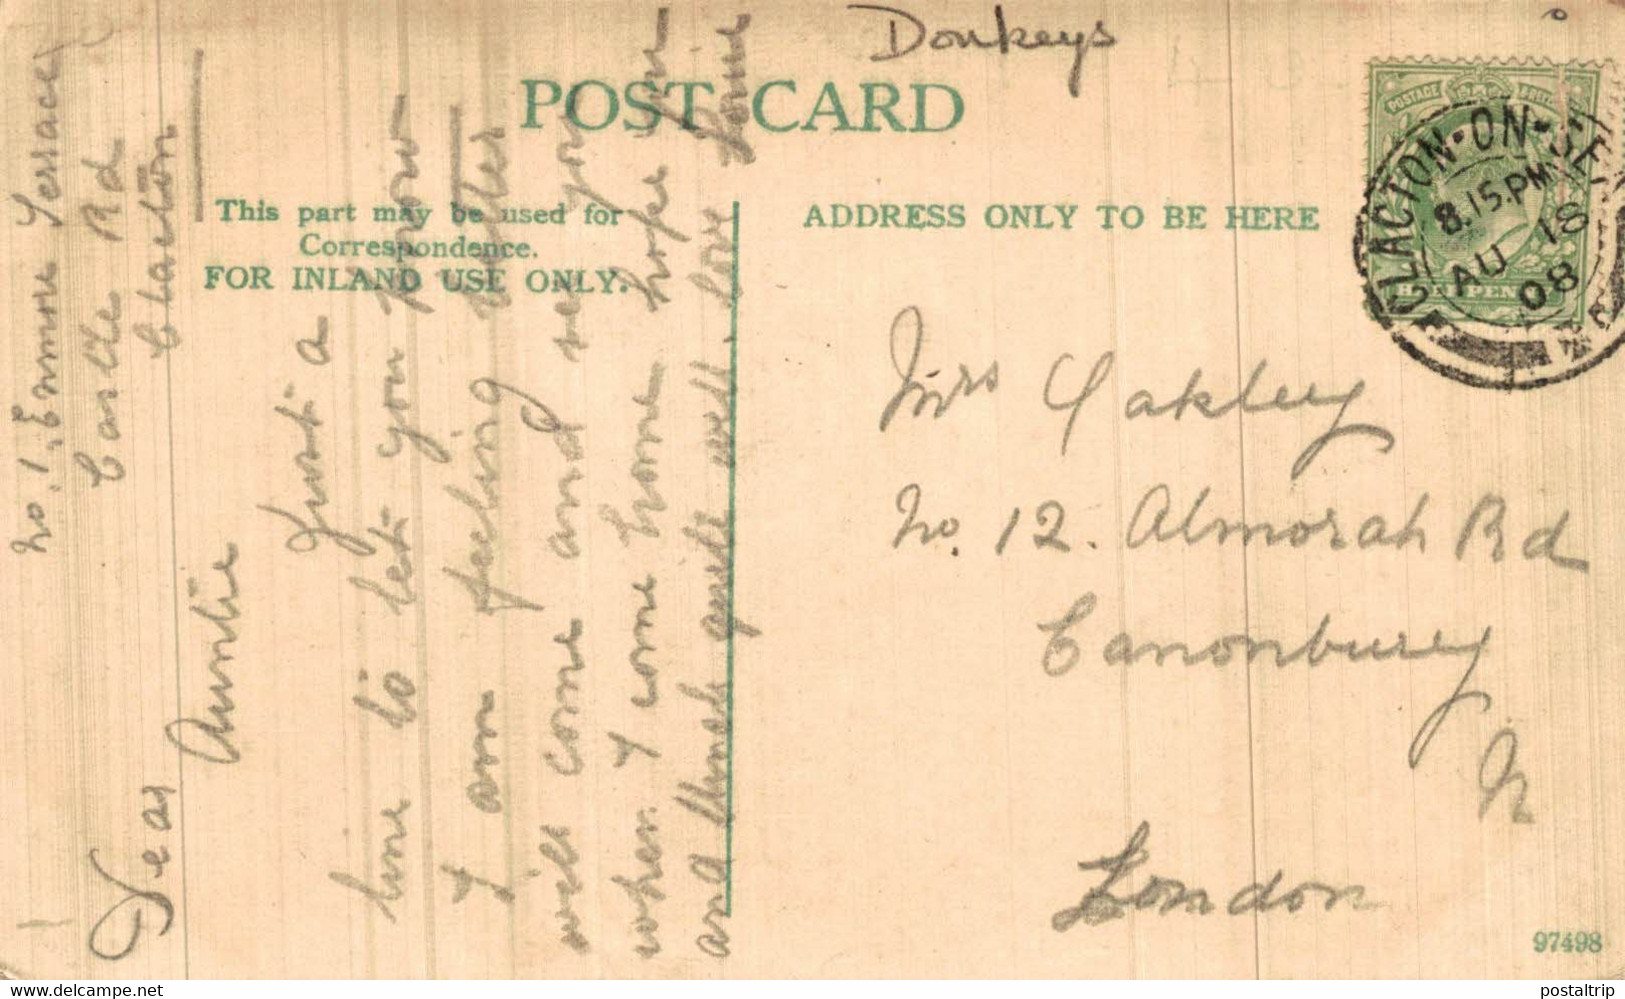 Donkeys
POST CARD
This part may be used for
Correspondence.
FOR INLAND USE ONLY.
ADDRESS ONLY TO BE HERE
POSTAGE
HALFPENNY
CLACTON-ON-SEA
8.15.PM
AU 18
08
No. 1, Terrace
Castle Rd
Clacton
Dear
Auntie
Just a
line to let you know
I am feeling better
will come and see you
when I come home hope you
and Uncle quite well. love
Mrs Oakley
No. 12. Almorah Rd
Canonbury
N
London
97498
www.delcampe.net
postaltrip